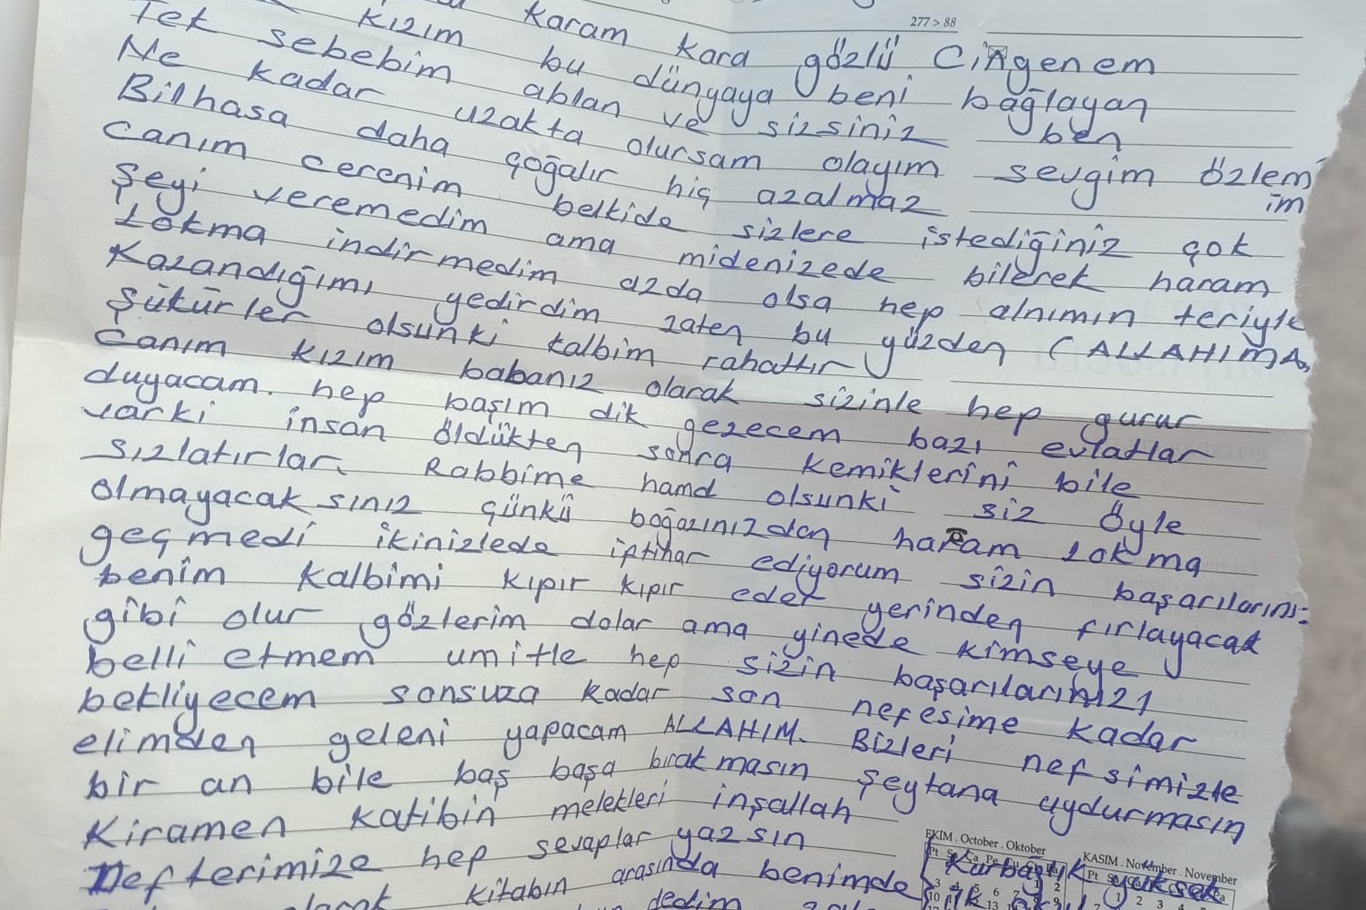 277 > 88
karam kara gözlü Cingenem
kızım bu dünyaya beni bağlayan
Tek sebebim ablan ve sizsiniz ben
Ne kadar uzakta olursam olayım sevgim özlem
im
Bilhasa daha çoğalır hiç azalmaz
canım cerenim belkide sizlere istediğiniz çok
şeyi veremedim ama midenizede bilerek haram
Lokma indirmedim azda olsa hep alnımın teriyle
Kazandığımı yedirdim zaten bu yüzden (ALLAHIMA,
şükürler olsunki kalbim rahattır
Canım kızım babanız olarak sizinle hep gurur
duyacam. hep başım dik gezecem bazı evlatlar
varki insan öldükten sonra kemiklerini bile
sızlatırlar. Rabbime hamd olsunki siz öyle
olmayacaksınız çünkü boğazınızdan haram Lokma
geçmedi ikinizlede iptihar ediyorum sizin başarılarını:
benim kalbimi kıpır kıpır eder yerinden fırlayacak
gibi olur gözlerim dolar ama yinede kimseye
belli etmem umitle hep sizin başarılarınızı
bekliyecem sonsuza kadar son nefesime kadar
elimden geleni yapacam ALLAHIM. Bizleri nefsimizle
bir an bile baş başa bırakmasın şeytana uydurmasın
Kiramen katibin melekleri inşallah
Defterimize hep sevaplar yazsın
kitabın arasında benimde
dedim
EKİM . October . Oktober
KASIM . November . November
Kurbağlık yüksek